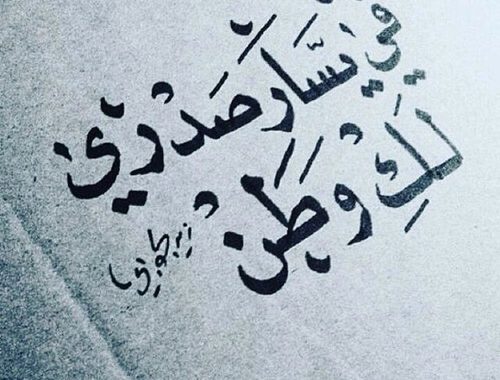 في يسَّار صَدْرِيْ
لَكِ وَطَنْ